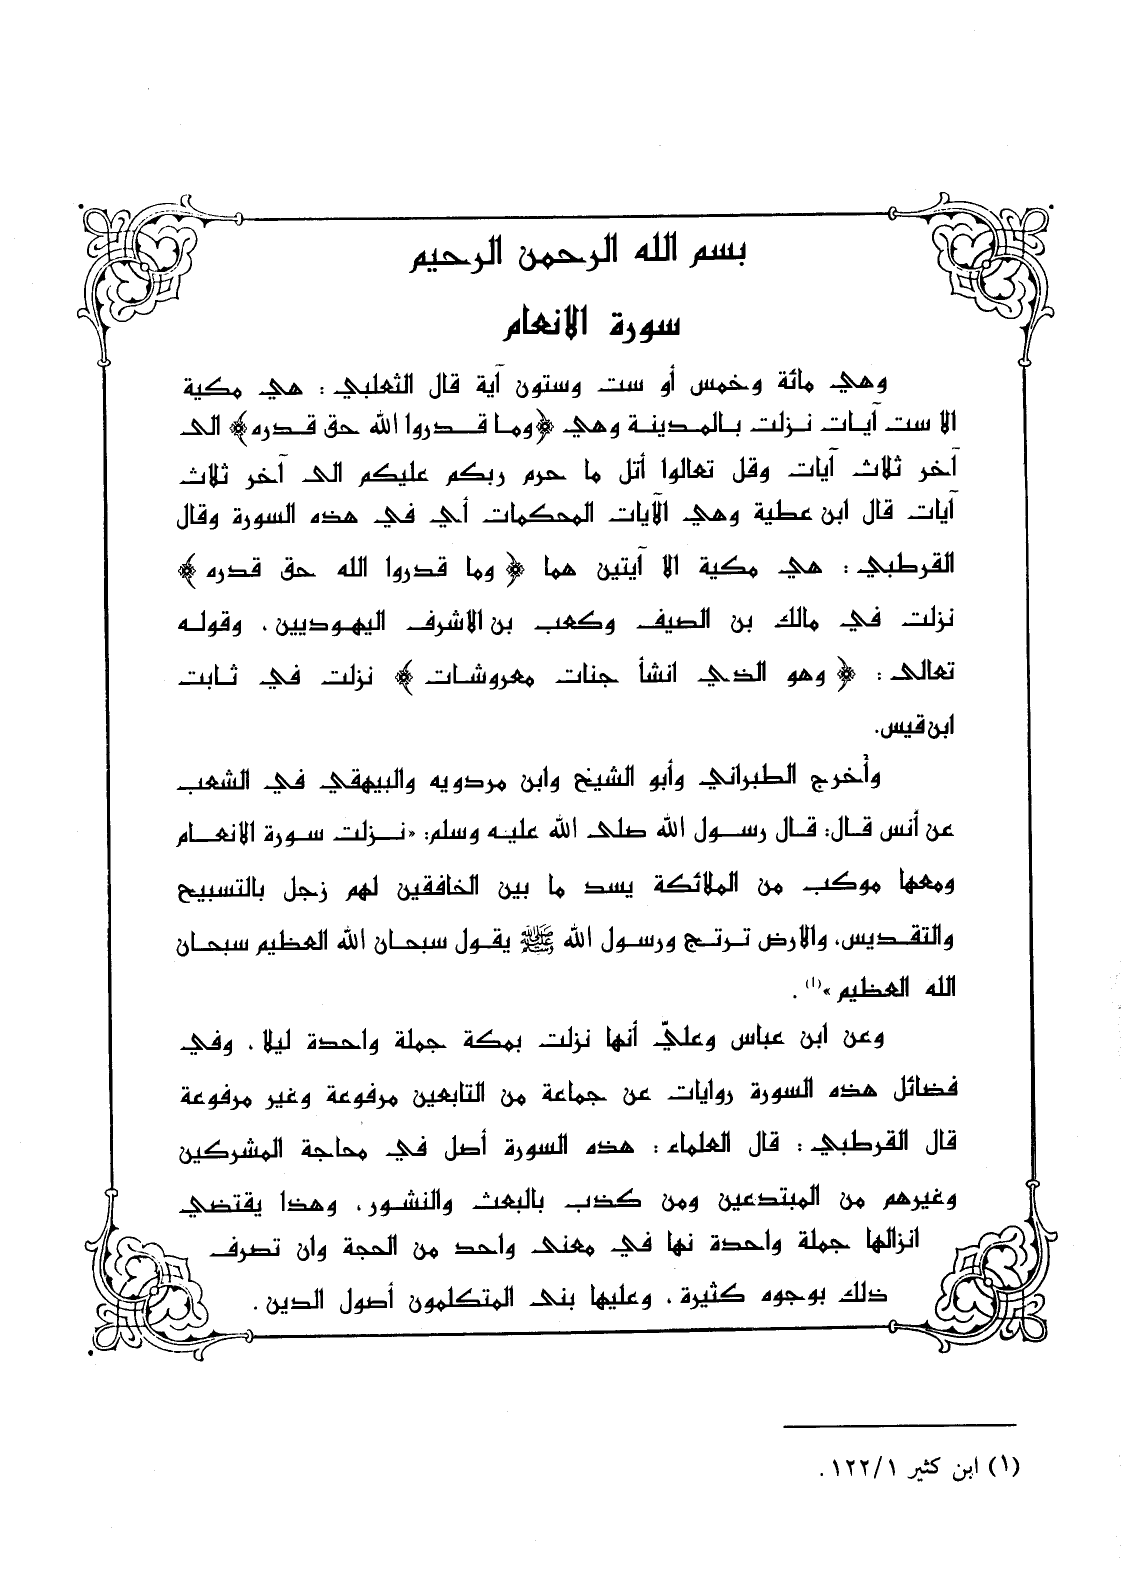 بسم الله الرحمن الرحيم
سورة الانعام
وهي مائة وخمس أو ست وستون آية قال الثعلبي : هي مكية
الا ست آيات نزلت بالمدينة وهي ﴿وما قدروا الله حق قدره﴾ الى
آخر ثلاث آيات وقل تعالوا أتل ما حرم ربكم عليكم الى آخر ثلاث
آيات قال ابن عطية وهي الآيات المحكمات أي في هذه السورة وقال
القرطبي : هي مكية الا آيتين هما ﴿ وما قدروا الله حق قدره ﴾
نزلت في مالك بن الصيف وكعب بن الاشرف اليهوديين ، وقوله
تعالى : ﴿ وهو الذي انشأ جنات معروشات ﴾ نزلت في ثابت
ابن قيس.
وأخرج الطبراني وأبو الشيخ وابن مردويه والبيهقي في الشعب
عن أنس قال: قال رسول الله صلى الله عليه وسلم: «نزلت سورة الانعام
ومعها موكب من الملائكة يسد ما بين الخافقين لهم زجل بالتسبيح
والتقديس، والارض ترتج ورسول الله ﷺ يقول سبحان الله العظيم سبحان
الله العظيم »(١) .
وعن ابن عباس وعليّ أنها نزلت بمكة جملة واحدة ليلا ، وفي
فضائل هذه السورة روايات عن جماعة من التابعين مرفوعة وغير مرفوعة
قال القرطبي : قال العلماء : هذه السورة أصل في محاجة المشركين
وغيرهم من المبتدعين ومن كذب بالبعث والنشور ، وهذا يقتضي
انزالها جملة واحدة نها في معنى واحد من الحجة وان تصرف
ذلك بوجوه كثيرة ، وعليها بنى المتكلمون أصول الدين .
(١) ابن كثير ١/١٢٢ .